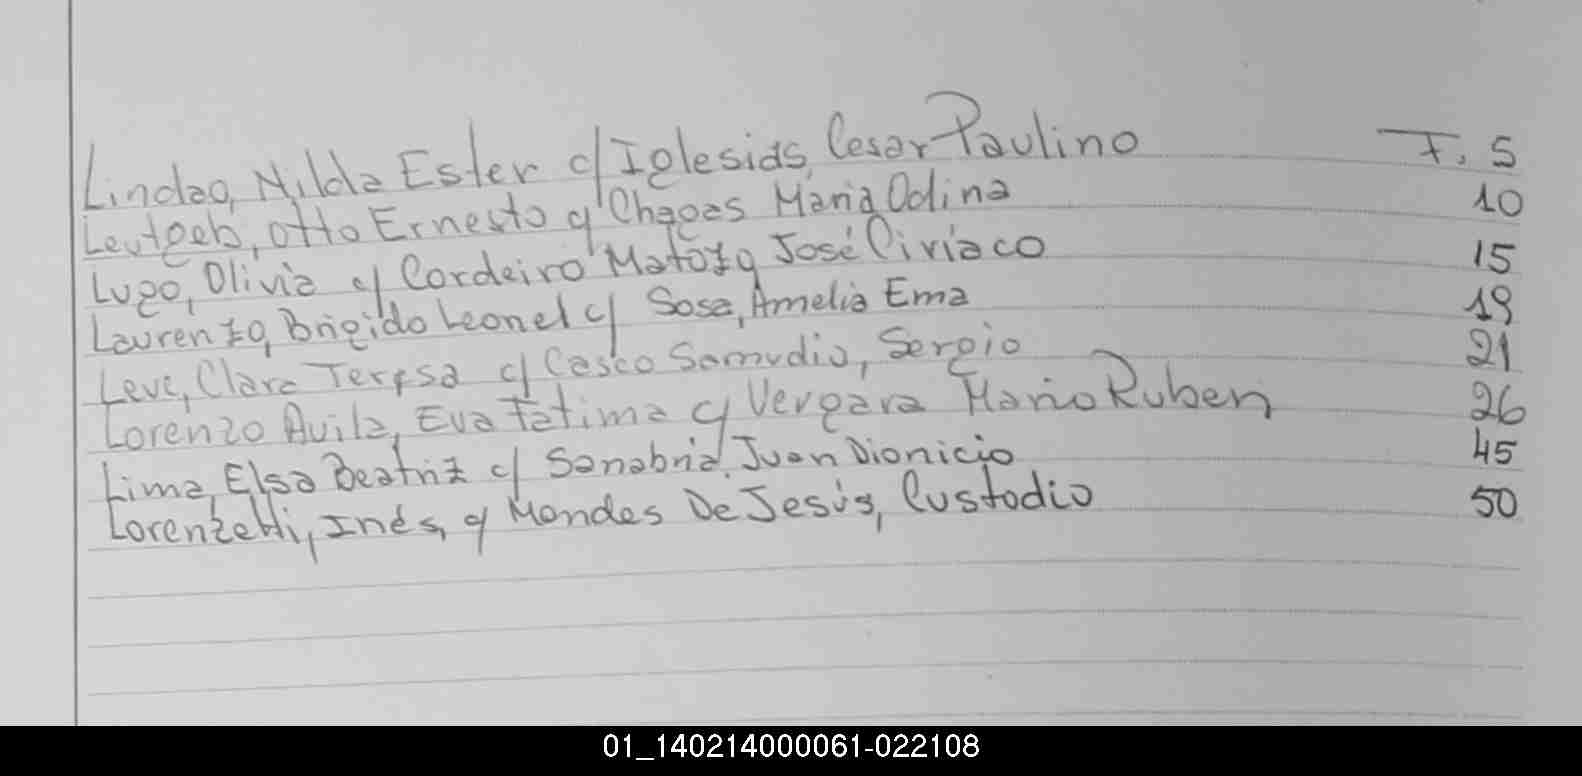 Lindao, Nilda Ester c/ Iglesias, Cesar Paulino F. 5
Leutgeb, Otto Ernesto c/ Chagas Maria Odina 10
Lugo, Olivia c/ Cordeiro Matozo José Ciríaco 15
Laurenzo, Brigido Leonel c/ Sosa, Amelia Ema 19
Leve, Clara Teresa c/ Casco Samudio, Sergio 21
Lorenzo Avila, Eva Fatima c/ Vergara Mario Ruben 26
Lima, Elsa Beatriz c/ Sanabria, Juan Dionicio 45
Lorenzetti, Inés, c/ Mendes De Jesús, Custodio 50
01_140214000061-022108